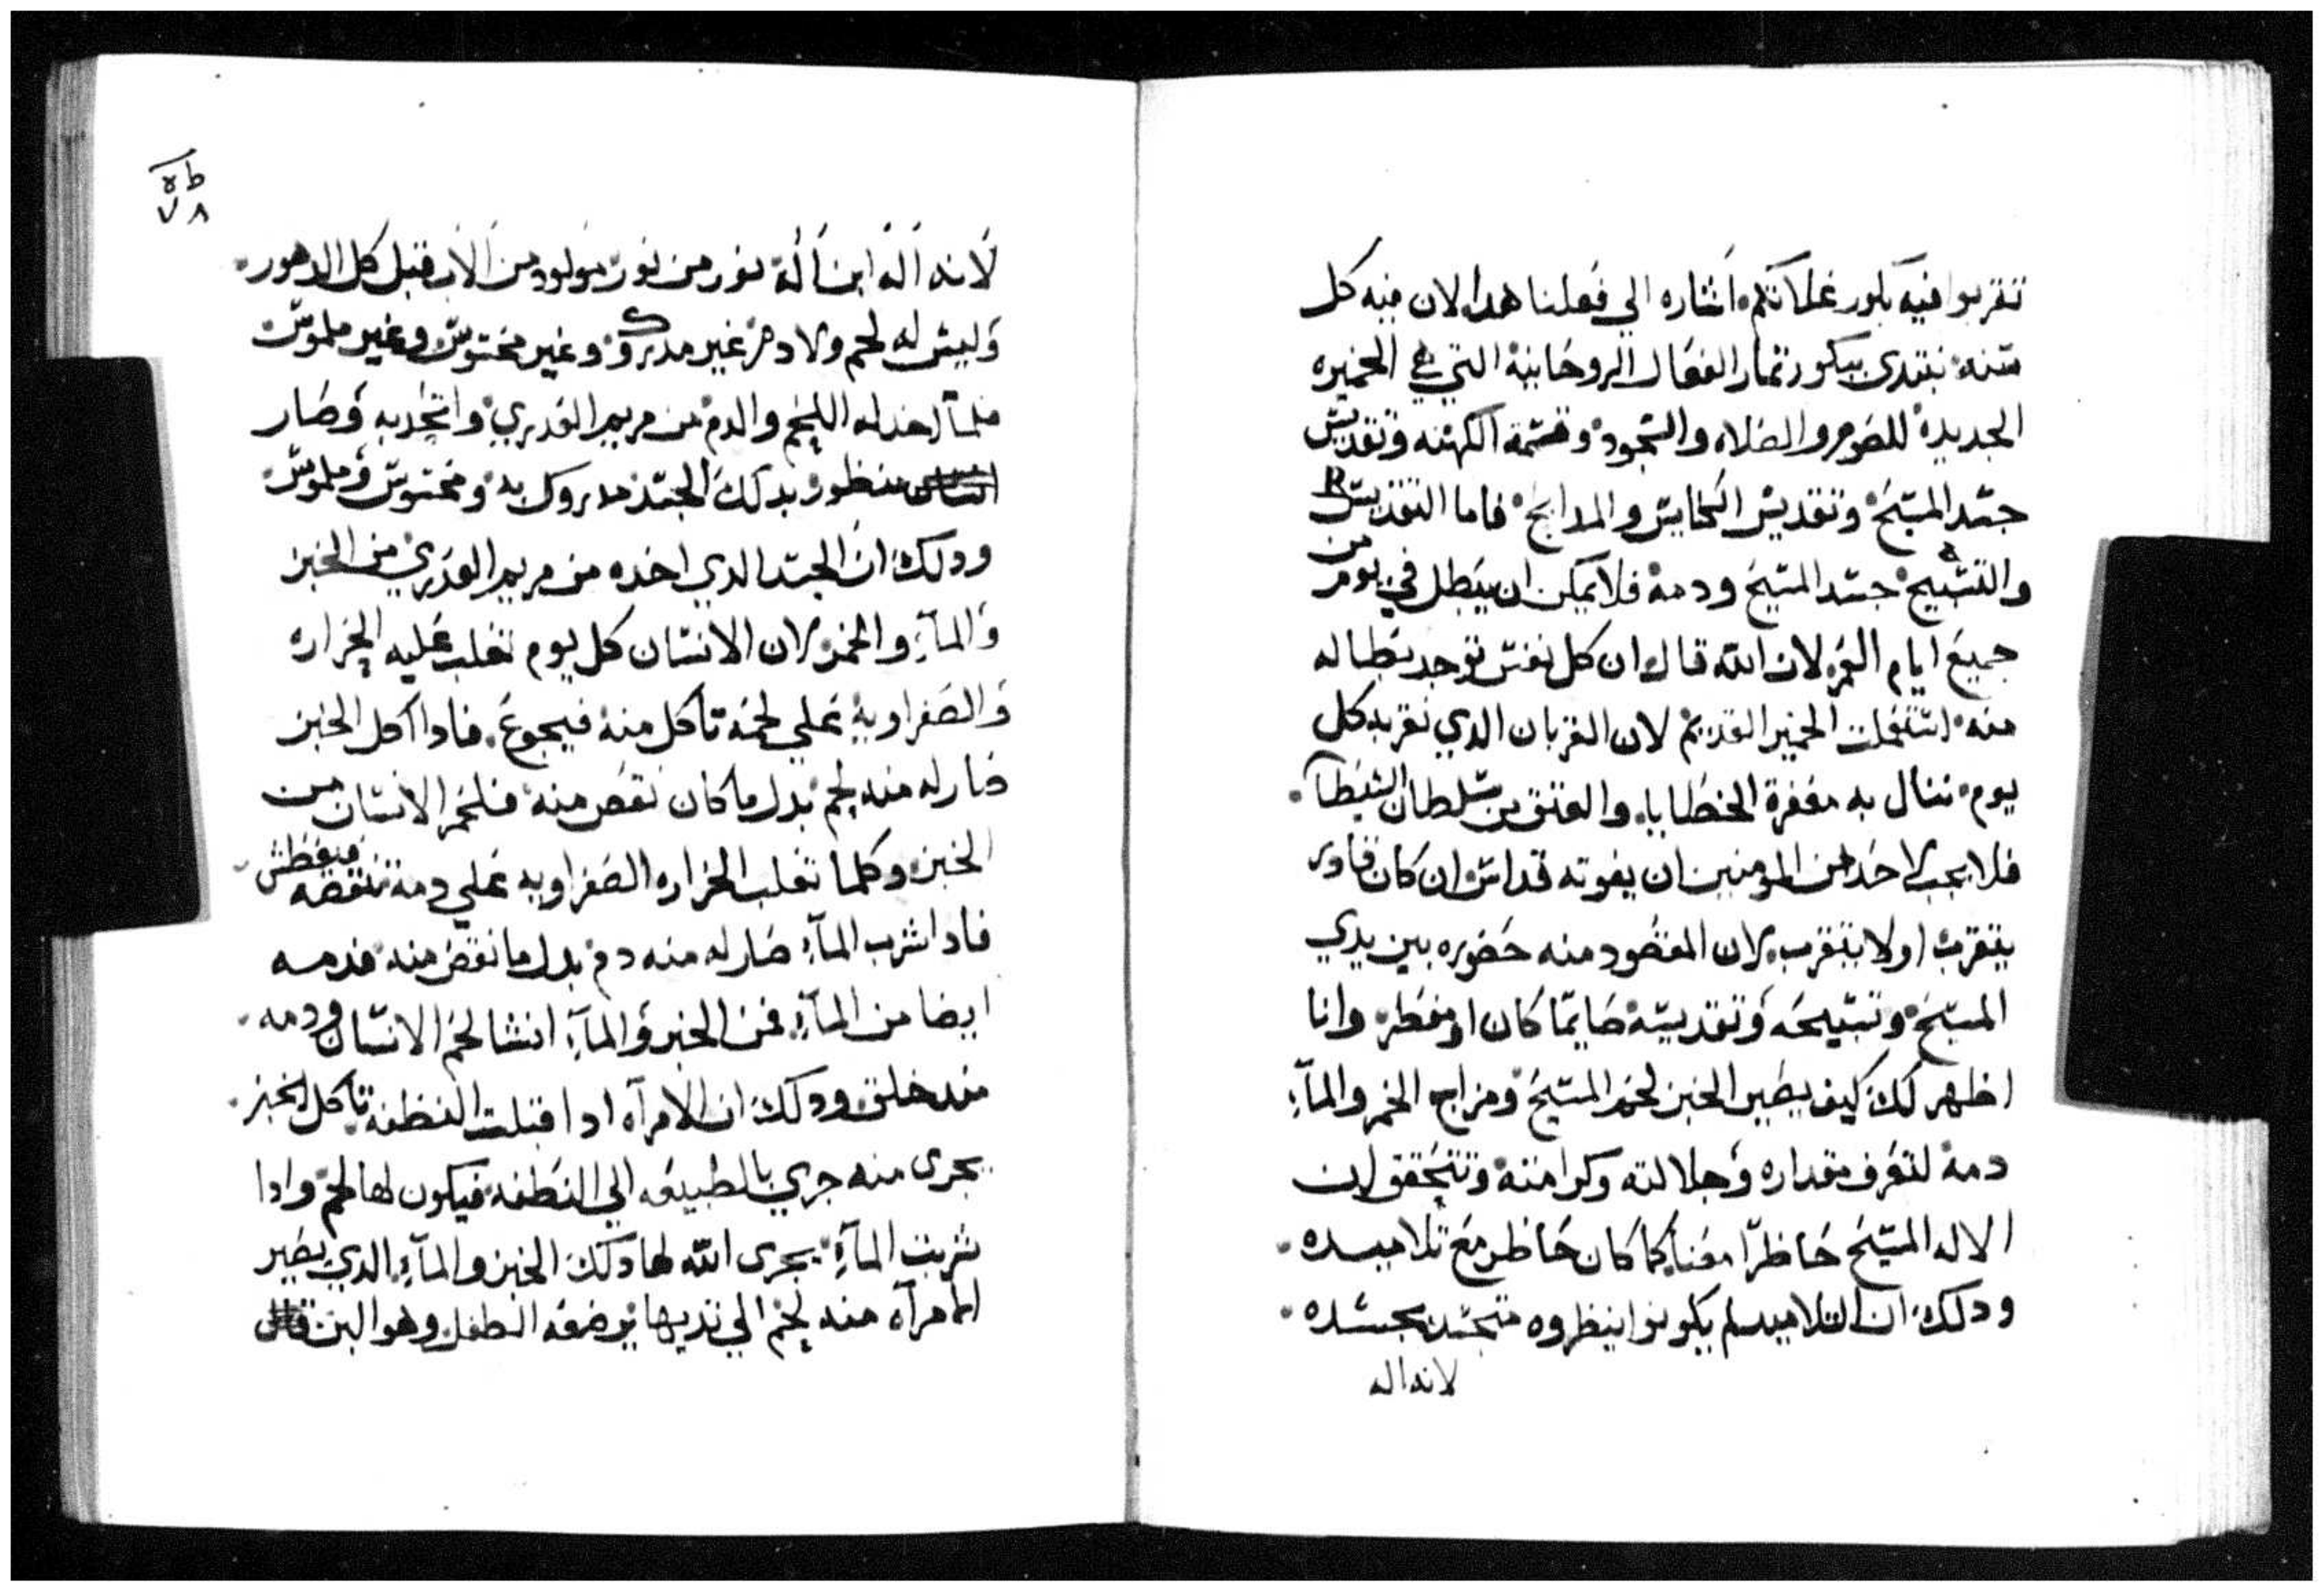 تتقربوا فيه بكور غلاتكم اشاره الي فعلنا هدا لان فيه كل
سنه نبتدي ببكور تمار الفعال الروحانية التي هي الخميره
الجديدة للصوم والصلاه والسجود وقسمة الكهنه وتقديس
جسد المسيح وتقديس الكنايس والمدابح فاما التقديس
والتسبيح جسد المسيح ودمه فلا يمكن ان يبطل في يوم من
جميع ايام العمر لان الله قال ان كل نفس توجد بطاله
منه استعملت الخمير القديم لان القربان الدي نقربه كل
يوم ننال به مغفرة الخطايا والعتق من سلطان الشيطان
فلا يجب لاحد من المومنين ان يفوته قداس ان كان قادر
يتقرب او لا يتقرب لان المقصود منه حضوره بين يدي
المسيح وتسبيحه وتقديسه صايما كان او مفطر وانا
اظهر لك كيف يصير الخبز لحم المسيح ومزاج الخمر والمآء
دمه لتعرف مقداره وجلالته وكرامته وتتحقق ان
الاله المسيح حاظرا معنا كما كان حاظر مع تلاميده
ودلك ان التلاميد لم يكونوا ينظروه متجسد بجسده
لانه اله
ط ه
٧٨
لانه اله ابن اله نور من نور مولود من الاب قبل كل الدهور
وليس له لحم ولا دم غير مدروك وغير محسوس وغير ملموس
فلما اخد له اللحم والدم من مريم العدري واتحد به وصار
منظور بدلك الجسد مدروك به ومحسوس وملموس
ودلك ان الجسد الدي اخده من مريم العدري من الخبز
والمآء والخمر لان الانسان كل يوم تغلب عليه الحراره
والصفراويه علي لحمه تاكل منه فيجوع فادا اكل الخبز
صار له منه لحم بدل ما كان نقص منه فلحم الانسان من
الخبز وكلما تغلب الحراره الصفراويه علي دمه تنقصه فيعطش
فادا شرب المآء صار له منه دم بدل ما نقص منه فدمه
ايضا من المآء فمن الخبز والمآء انشا لحم الانسان ودمه
مند خلق ودلك ان الامرآه ادا قبلت النطفه تاكل الخبز
يجري منه جري بالطبيعه الي النطفه فيكون لها لحم وادا
شربت المآء يجري الله لها دلك الخبز والمآء الدي يصير
للمرآه منه لحم الي تديها يرضعه الطفل وهو البن